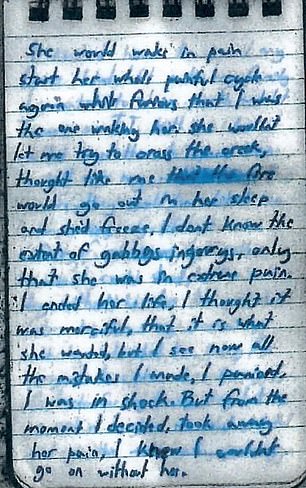 She would wake in pain
start her whole painful cycle
again furious that I was
the one waking her. She wouldnt
let me try to cross the creek,
thought like me the fire
would go out in her sleep
and she'd freeze, I dont know the
extent of gabbys injurys, only
that she was in extreme pain.
I ended her life, I thought it
was merciful, that it is what
she wanted, but I see now all
the mistakes I made, I panicked,
I was in shock. But from the
moment I decided, took away
her pain, I knew I wouldnt
go on without her.